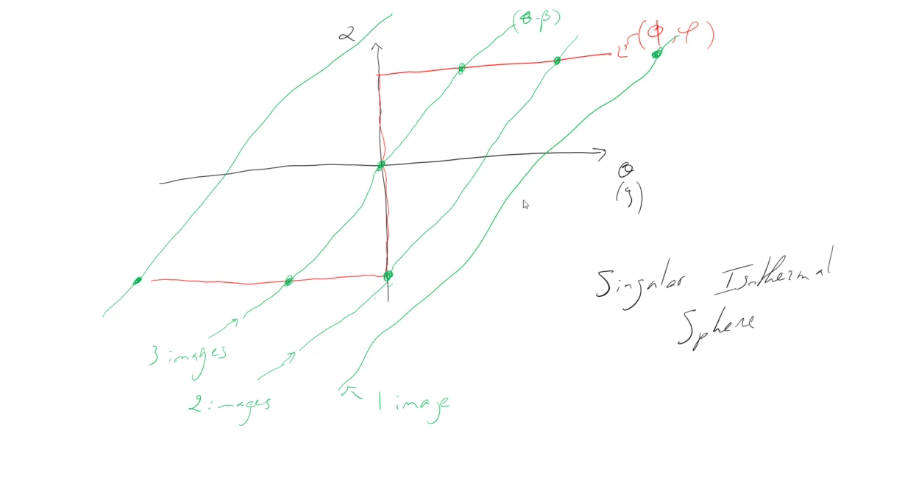 α
(θ-β)
(ϕ φ)
θ
(ξ)
Singular Isothermal
Sphere
3 images
2 images
1 image